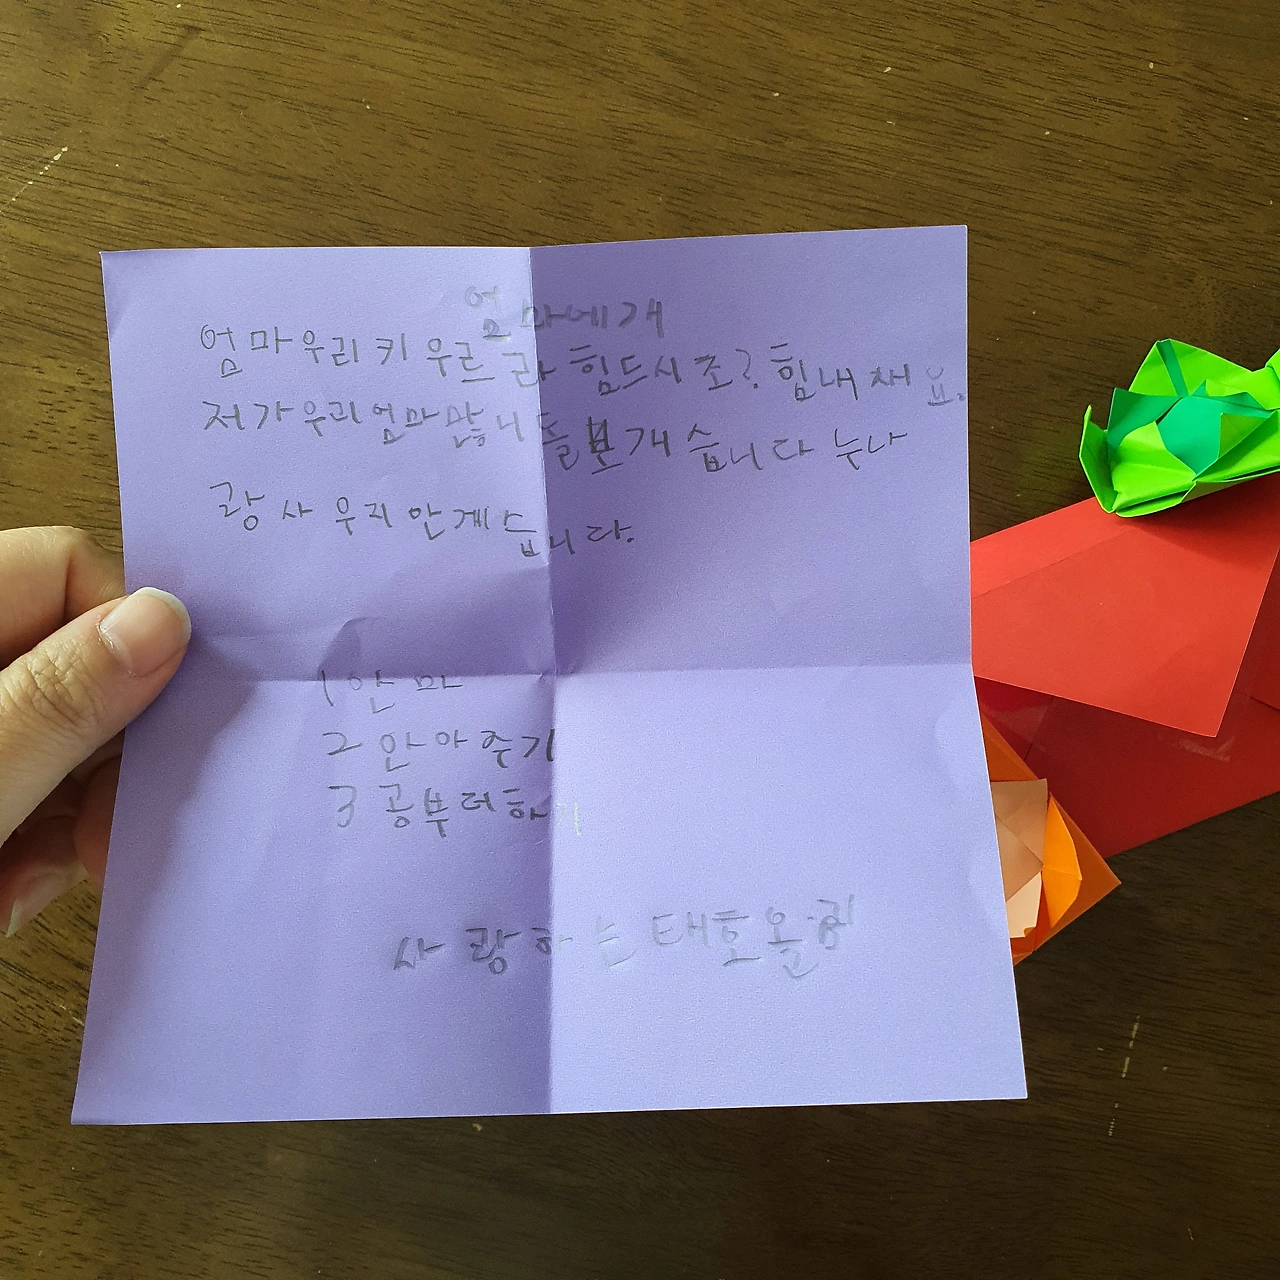 엄마에개
엄마우리키우르라힘드시조?힘내새요.
저가우리엄마많니돌보개습니다누나
랑사우지안게습니다.
1안마
2안아주기
3공부더하기
사랑하는태호올림